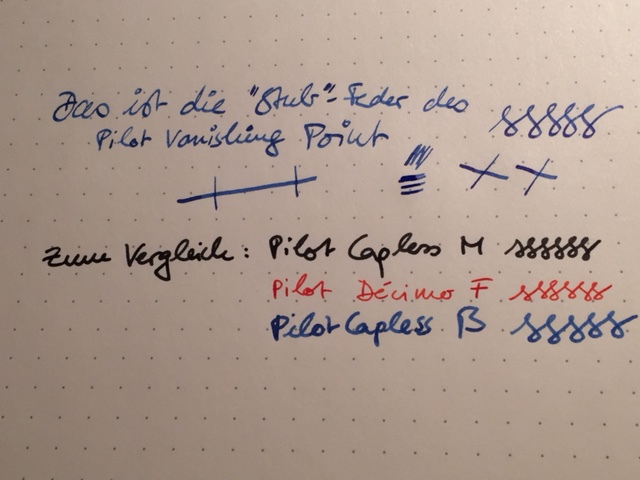 Das ist die "Stub"-Feder des
Pilot Vanishing Point
Zum Vergleich: Pilot Capless M
Pilot Décimo F
Pilot Capless B